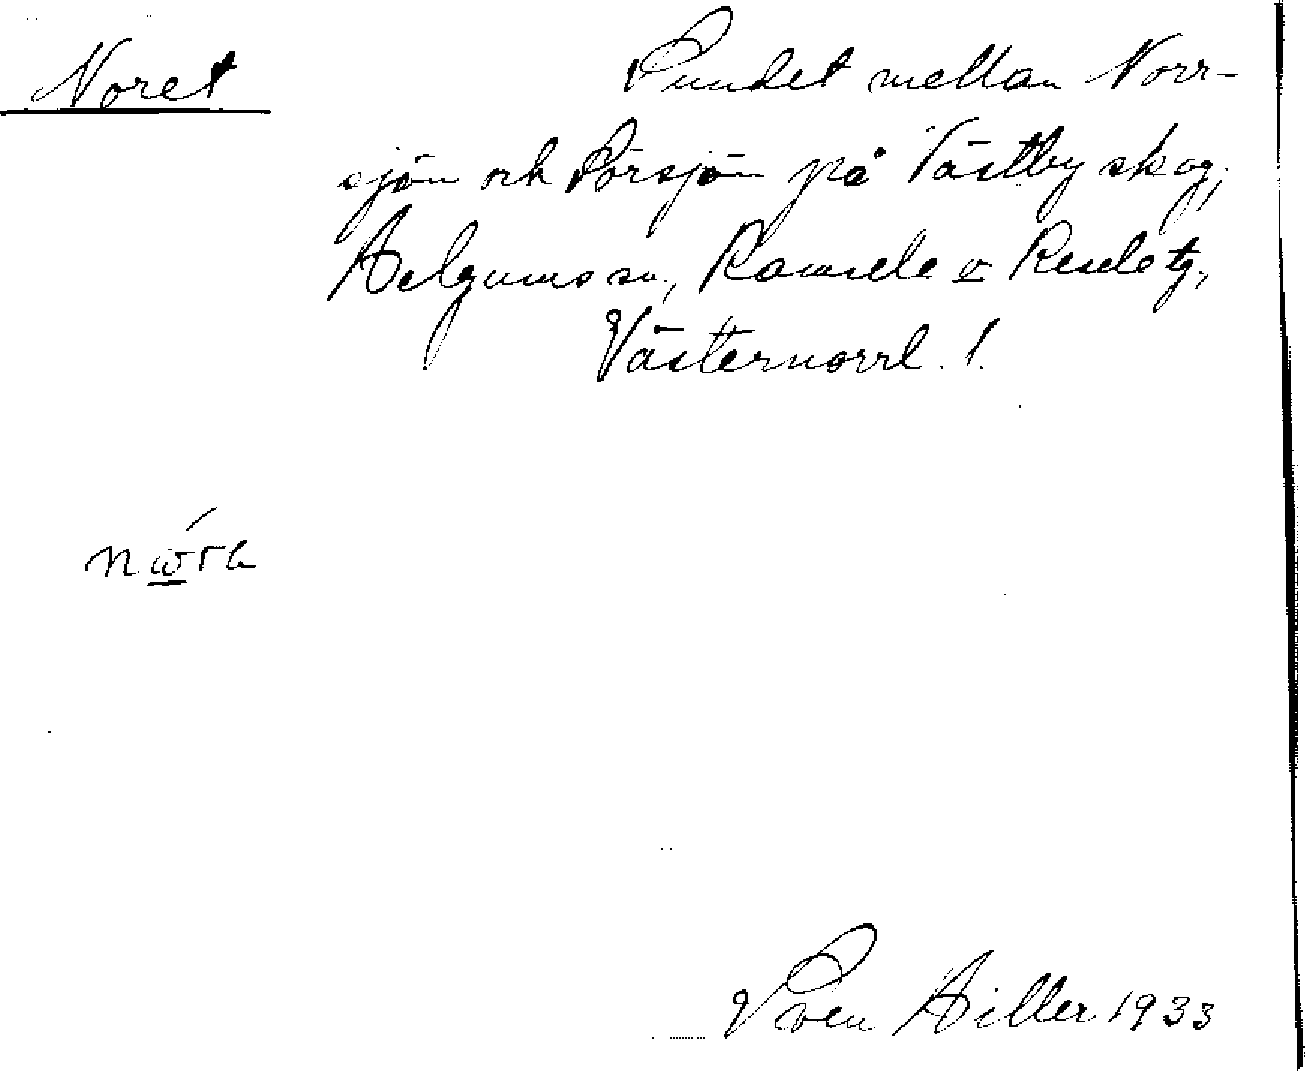 Noret Sundet mellan Norr-
sjön och Sörsjön på Västby skog,
Helgums sn, Ramsele o Resele tg,
Västernorrl. l.
nώ̱ra
Sven Hiller 1933